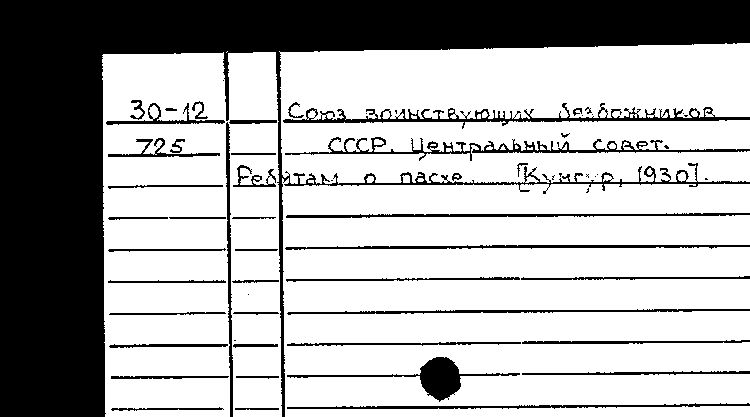 30-12 Союз воинствующих безбожников
725 СССР. Центральный совет.
Ребятам о пасхе. [Кунгур, 1930].